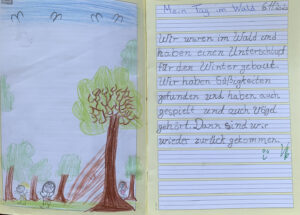 Mein Tag im Wald
Wir waren im Wald und
haben einen Unterschlupf
für den Winter gebaut.
Wir haben Süßigkeiten
gefunden und haben auch
gespielt und auch Vögel
gehört. Dann sind wir
wieder zurück gekommen.